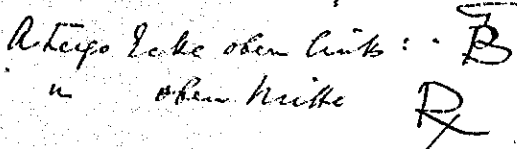 A tergo Ecke oben links: B
" oben Mitte Rx